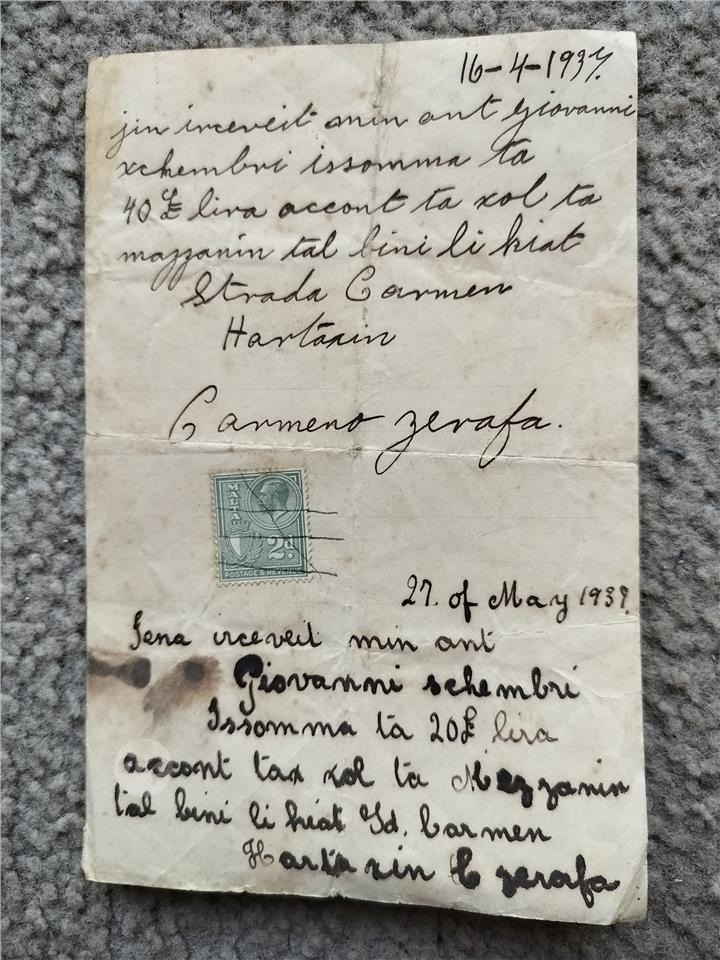 16-4-1937.
jin irceveit min ant Giovanni
xchembri issomma ta
40 £ lira accont ta xol ta
mazzanin tal bini li kiat
Strada Carmen
Hartaxin
Carmeno zerafa.
MALTA
2d.
POSTAGE & REVENUE
27. of May 1937.
Jena irceveit min ant
Giovanni schembri
Issomma ta 20£ lira
accont tax xol ta Mezzanin
tal bini li kiat Sd. Carmen
Hartaxin C zerafa